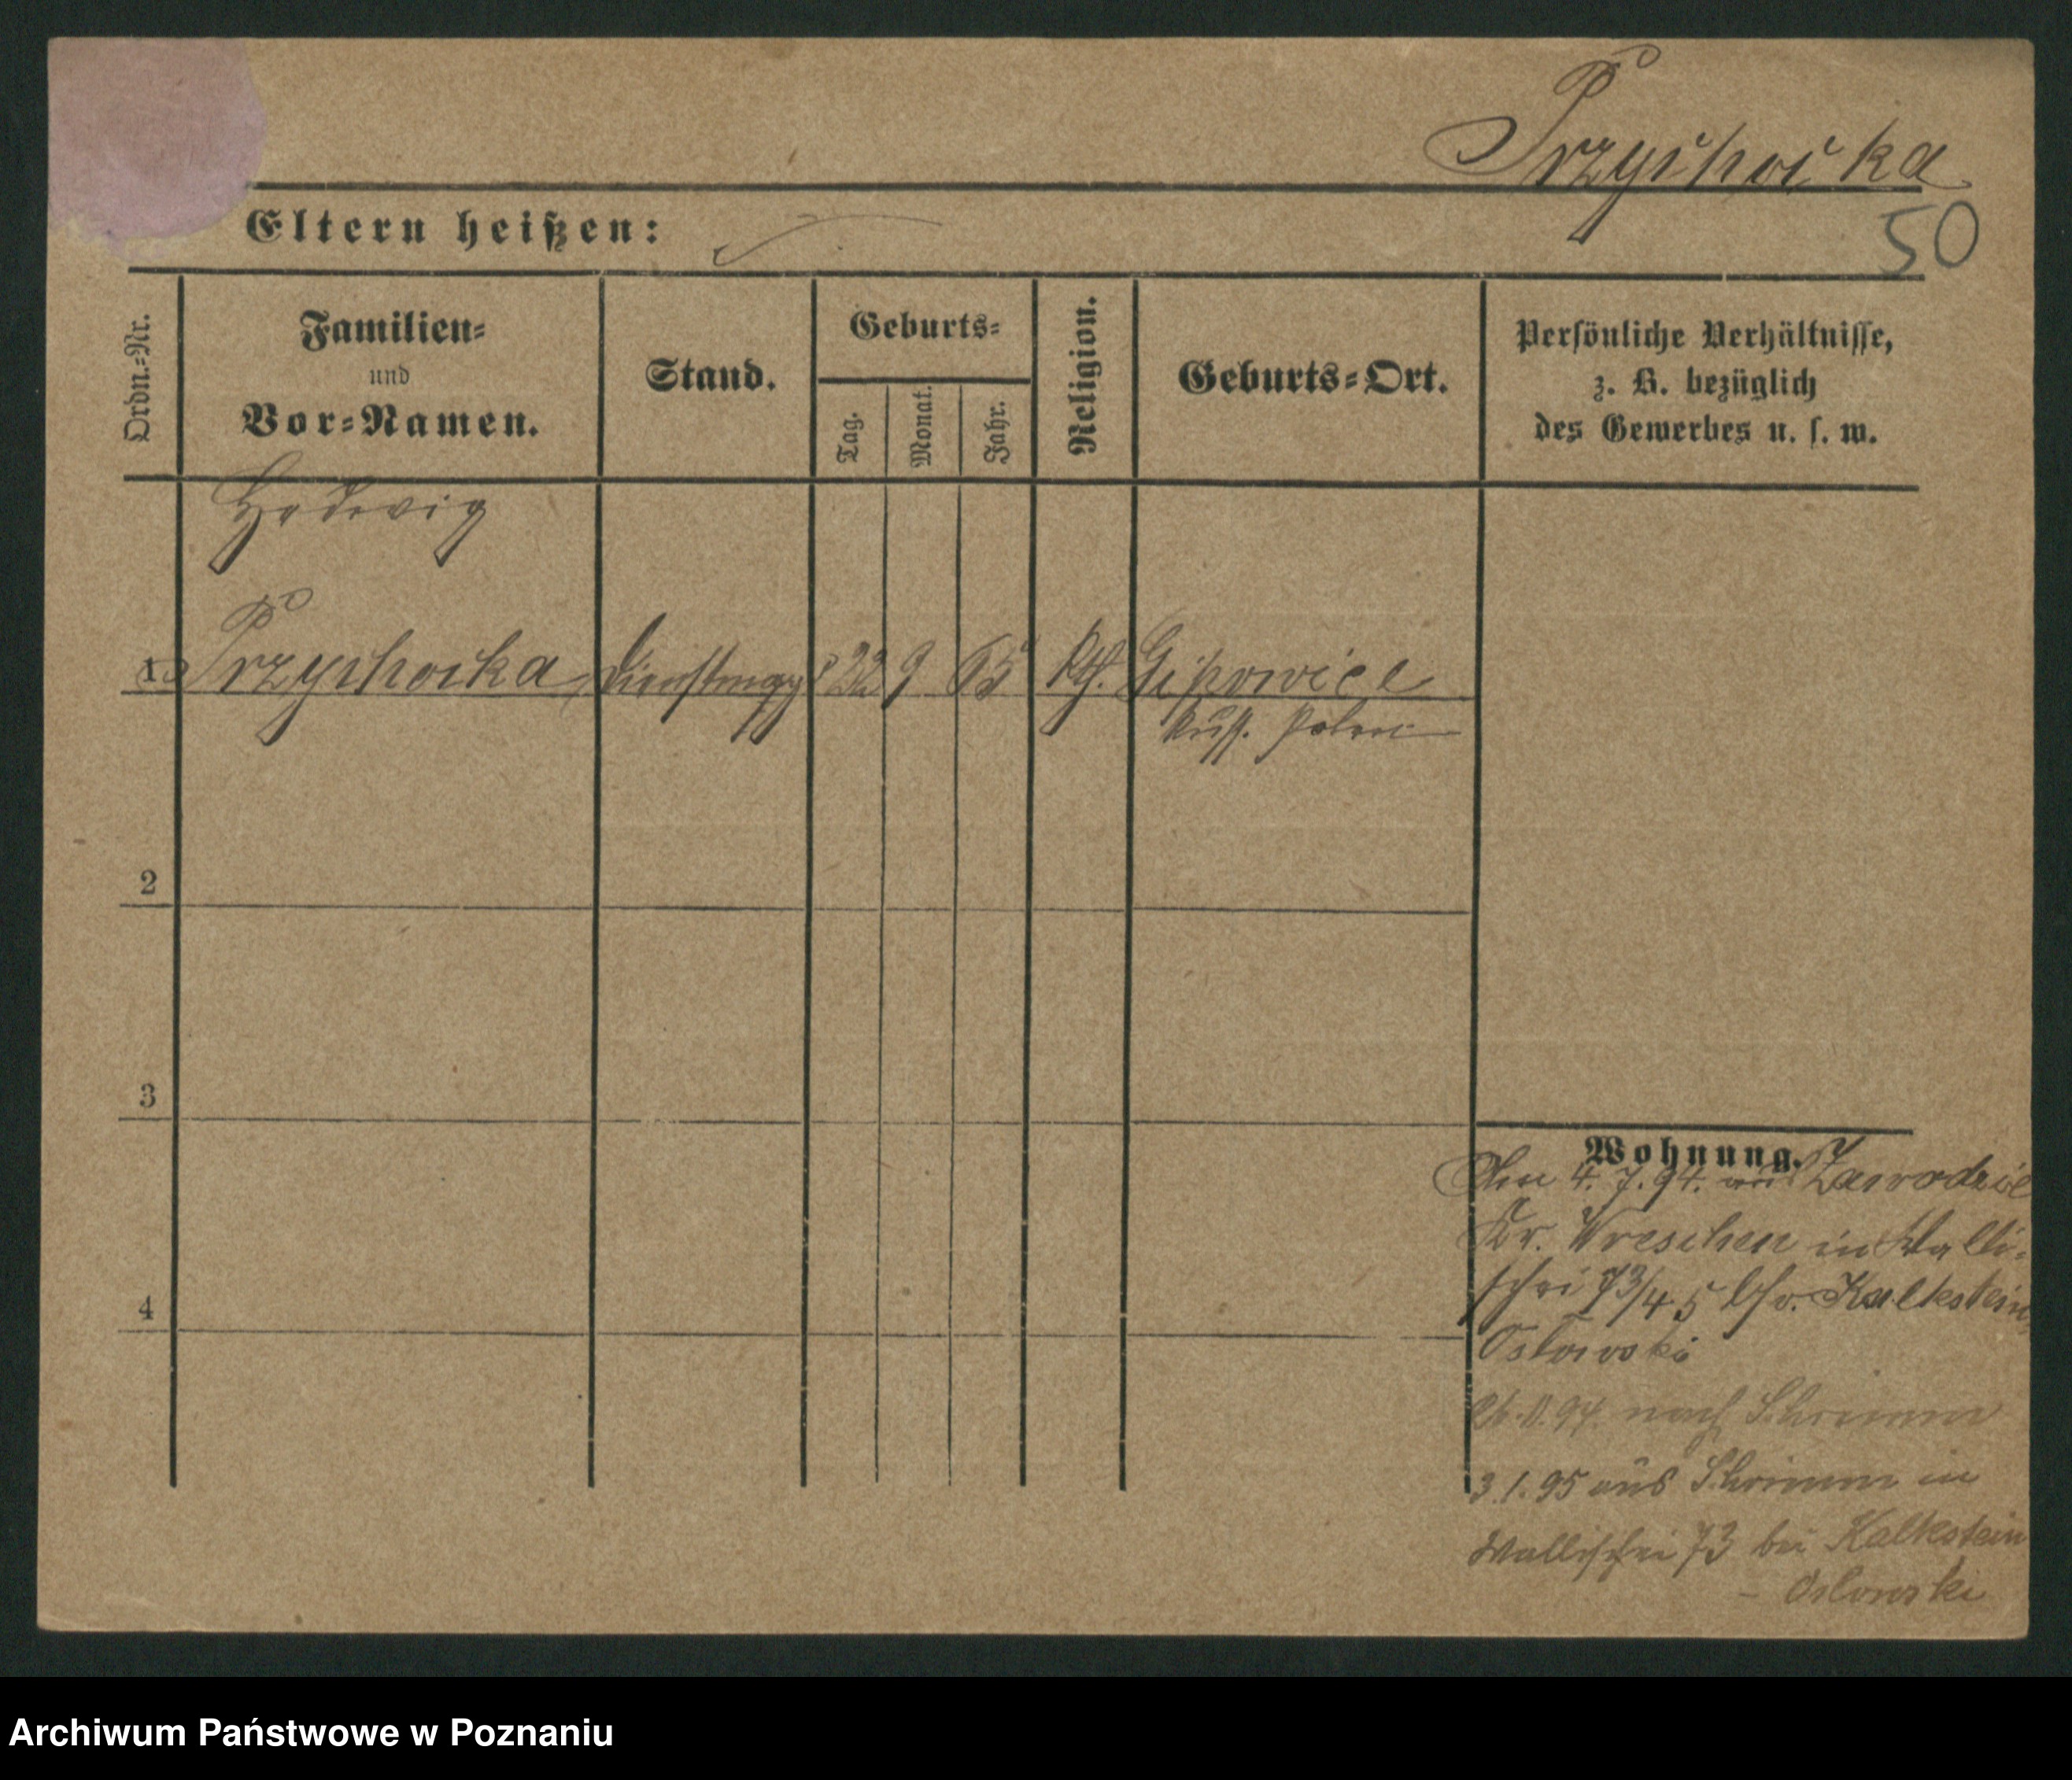 Przychocka
50
Eltern heißen:
Ordn.-Nr.
Familien-
und
Vor-Namen.
Stand.
Geburts-
Tag.
Monat.
Jahr.
Religion.
Geburts-Ort.
Persönliche Verhältnisse,
z. B. bezüglich
des Gewerbes u. s. w.
Hedwig
1 Przychocka Dienstmagd 22 9 65 Kth. Gipowice
Russ. Polen
2
3
4
Wohnung.
Am 4. 7. 94. aus Zawodzie
Kr. Wreschen in Walli-
schei 73/4.5 bei v. Kalkstein
Oslowski
94. nach Schrimm
3.1.95 aus Schrimm in
Wallischei 73 bei Kalkstein
- Oslowski
Archiwum Państwowe w Poznaniu